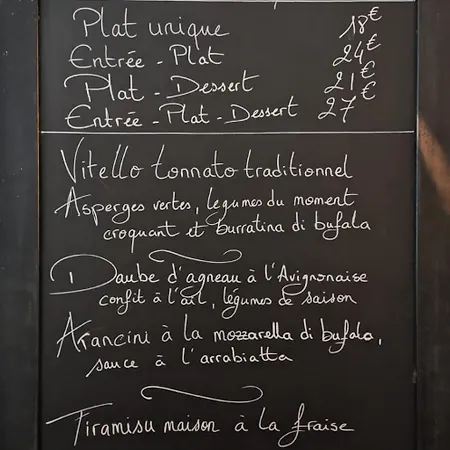 Plat unique 18€
Entrée - Plat 24€
Plat - Dessert 21€
Entrée - Plat - Dessert 27€
Vitello tonnato traditionnel
Asperges vertes, légumes du moment
croquant et burratina di bufala
Daube d'agneau à l'Avignonaise
confit à l'ail, légumes de saison
Arancini à la mozzarella di bufala,
sauce à l'arrabiatta
Tiramisu maison à la fraise